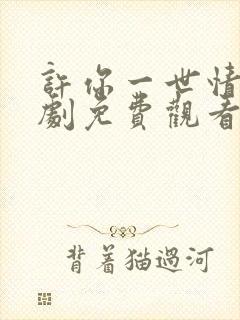 許你一世情
劇免費觀看
背着猫過河